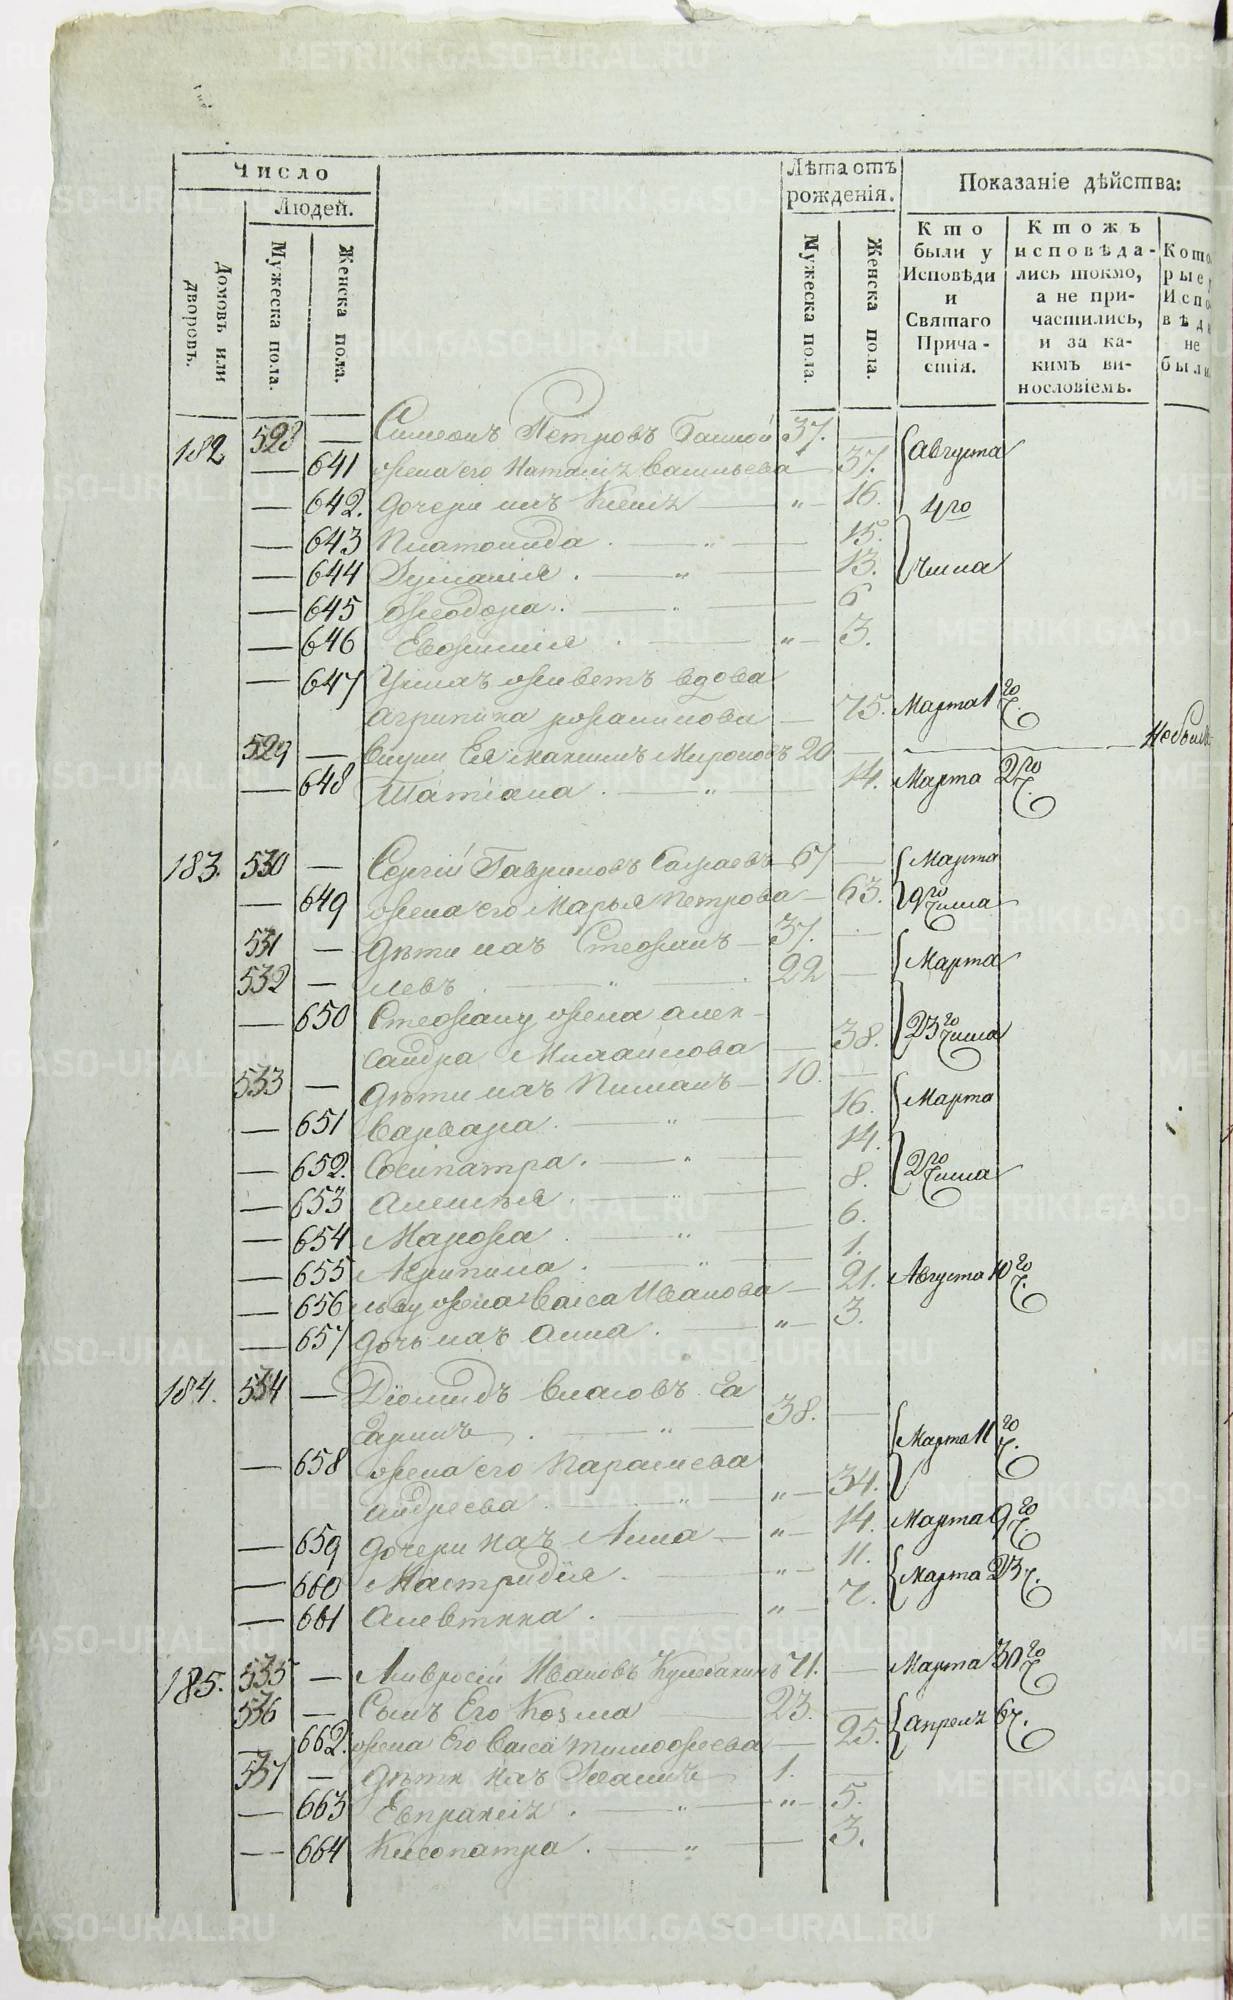 Число
Людей.
Домовъ или дворовъ.
Мужеска пола.
Женска пола.
Лѣта отъ рожденія.
Мужеска пола.
Женска пола.
Показаніе дѣйства:
Кто были у Исповѣди и Святаго Причастія.
Ктожъ исповѣдались токмо, а не причастились, и за какимъ винословіемъ.
Которые у Исповѣди не были.
182 528 — Симеонъ Петровъ 37. — Августа
— 641 жена его Наталія Васильева — 37.
— 642. дочери ихъ — „ — 16. 4го
— 643 — „ — 15.
— 644 — „ — 13. числа
— 645 Ѳеодора. — „ — 6
— 646 Евѳимія — „ — 3.
— 647 Унихъ живетъ вдова
Агрипина — 75. Марта 1го ч.
529 — Внуки Ея Максимъ Мироновъ 20 — Небылъ
— 648 Татіана — „ — 14. Марта 2го ч.
183. 530 — Сергій Гавриловъ 67 — Марта
— 649 жена его Марья Петрова — 63. 9го числа
531 — дѣти ихъ Стефанъ — 37. — Марта
532 — Левъ — „ — 22 —
— 650 Стефану жена Алек-
сандра Михаилова — 38. 23го числа
533 — дѣти ихъ — 10. — Марта
— 651 Варвара. — „ — 16.
— 652. Сосипатра. — „ — 14. 2го числа
— 653 — „ — 8.
— 654 Марѳа — „ — 6.
— 655 Агрипина — „ — 1.
— 656 Льву жена Васса Иванова — 21. Августа 10го ч.
— 657 дочь ихъ Анна. — „ — 3.
184. 534 — Діомидъ Власовъ Га
гаринъ — „ — 38. — Марта 11го ч.
— 658 жена его Парасковья
Андреева — „ — 34.
— 659 дочери ихъ Анна — „ — 14. Марта 9го ч.
— 660 — „ — 11. Марта 23 ч.
— 661 Алевтина — „ — 7.
185. 535 — Амвросій Ивановъ 71. — Марта 30го ч.
536 — Сынъ Его Козма 23. — Апреля 6 ч.
— 662. жена Его Васса Тимофеева — 25.
537 — дѣти ихъ — 1. —
— 663 Евпраксія — „ — 5.
— 664 Клеопатра — „ — 3.
METRIKI.GASO-URAL.RU